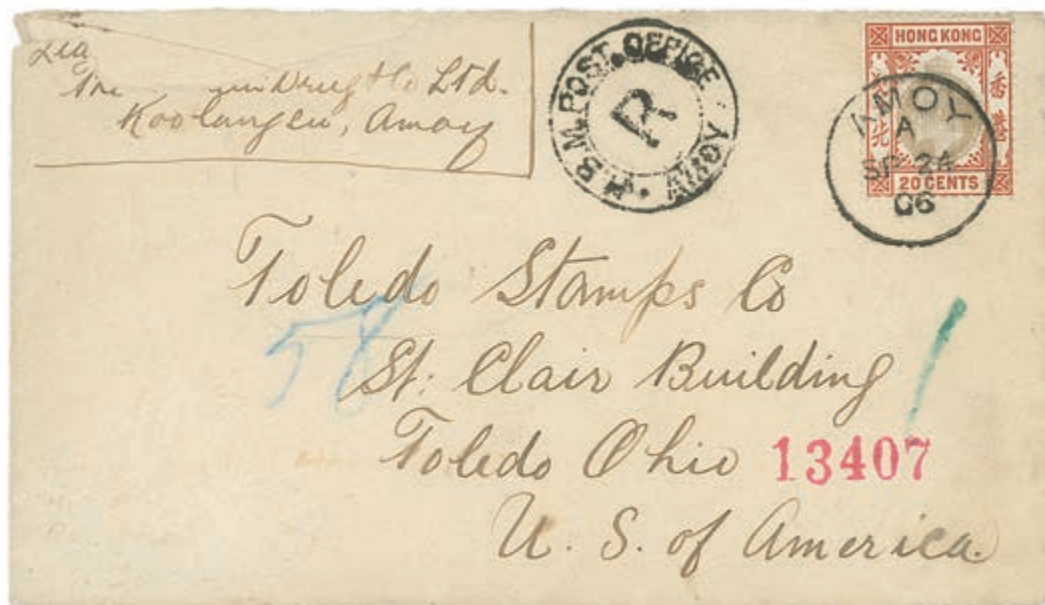 Drug & Co Ltd.
Koolangsu, Amoy
H.B.M. POST. OFFICE AMOY
R
HONG KONG
香港
20 CENTS
AMOY
A
SP 24
06
Toledo Stamps Co
58
St. Clair Building
Toledo Ohio 13407
U. S. of America.